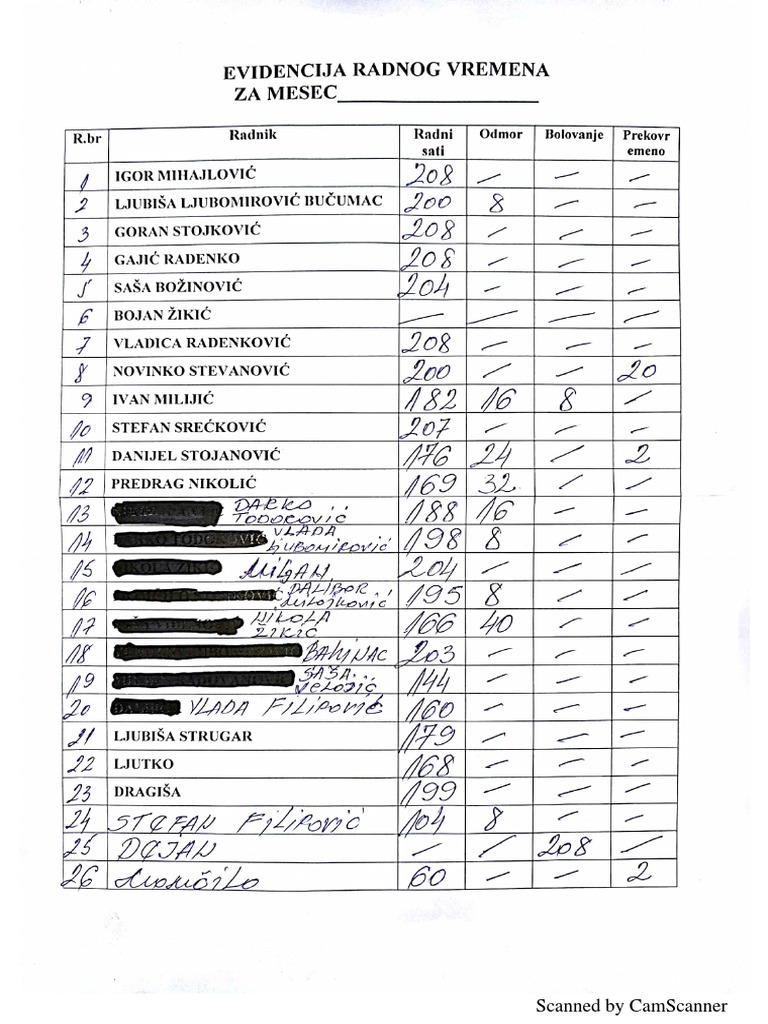 EVIDENCIJA RADNOG VREMENA
ZA MESEC____________________
R.br Radnik Radni sati Odmor Bolovanje Prekovremeno
1 IGOR MIHAJLOVIĆ 208 — — —
2 LJUBIŠA LJUBOMIROVIĆ BUČUMAC 200 8 — —
3 GORAN STOJKOVIĆ 208 — — —
4 GAJIĆ RADENKO 208 — — —
5 SAŠA BOŽINOVIĆ 204 — — —
6 BOJAN ŽIKIĆ — — — —
7 VLADICA RADENKOVIĆ 208 — — —
8 NOVINKO STEVANOVIĆ 200 — — 20
9 IVAN MILIJIĆ 182 16 8 —
10 STEFAN SREĆKOVIĆ 207 — — —
11 DANIJEL STOJANOVIĆ 176 24 — 2
12 PREDRAG NIKOLIĆ 169 32 — —
13 DARKO TODOROVIĆ 188 16 — —
14 VLADA LJUBOMIROVIĆ 198 8 — —
15 204 — — —
16 DALIBOR 195 8 — —
17 NIKOLA ŽIKIĆ 166 40 — —
18 203 — — —
19 SAŠA 144 — — —
20 VLADA FILIPOVIĆ 160 — — —
21 LJUBIŠA STRUGAR 179 — — —
22 LJUTKO 168 — — —
23 DRAGIŠA 199 — — —
24 STEFAN FILIPOVIĆ 104 8 — —
25 DEJAN — — 208 —
26 Momčilo 60 — — 2
Scanned by CamScanner